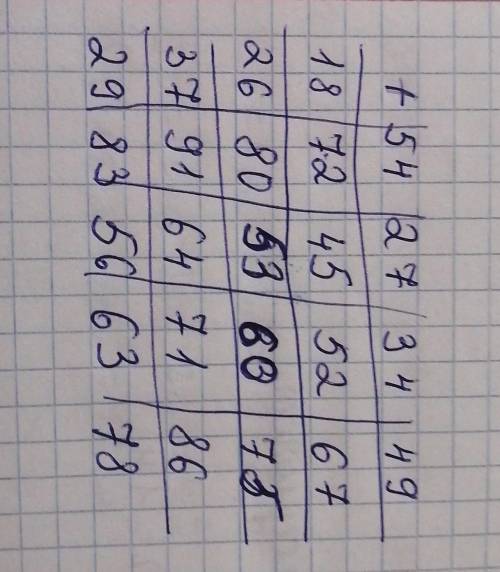 + 54 27 34 49
18 72 45 52 67
26 80 53 60 75
37 91 64 71 86
29 83 56 63 78